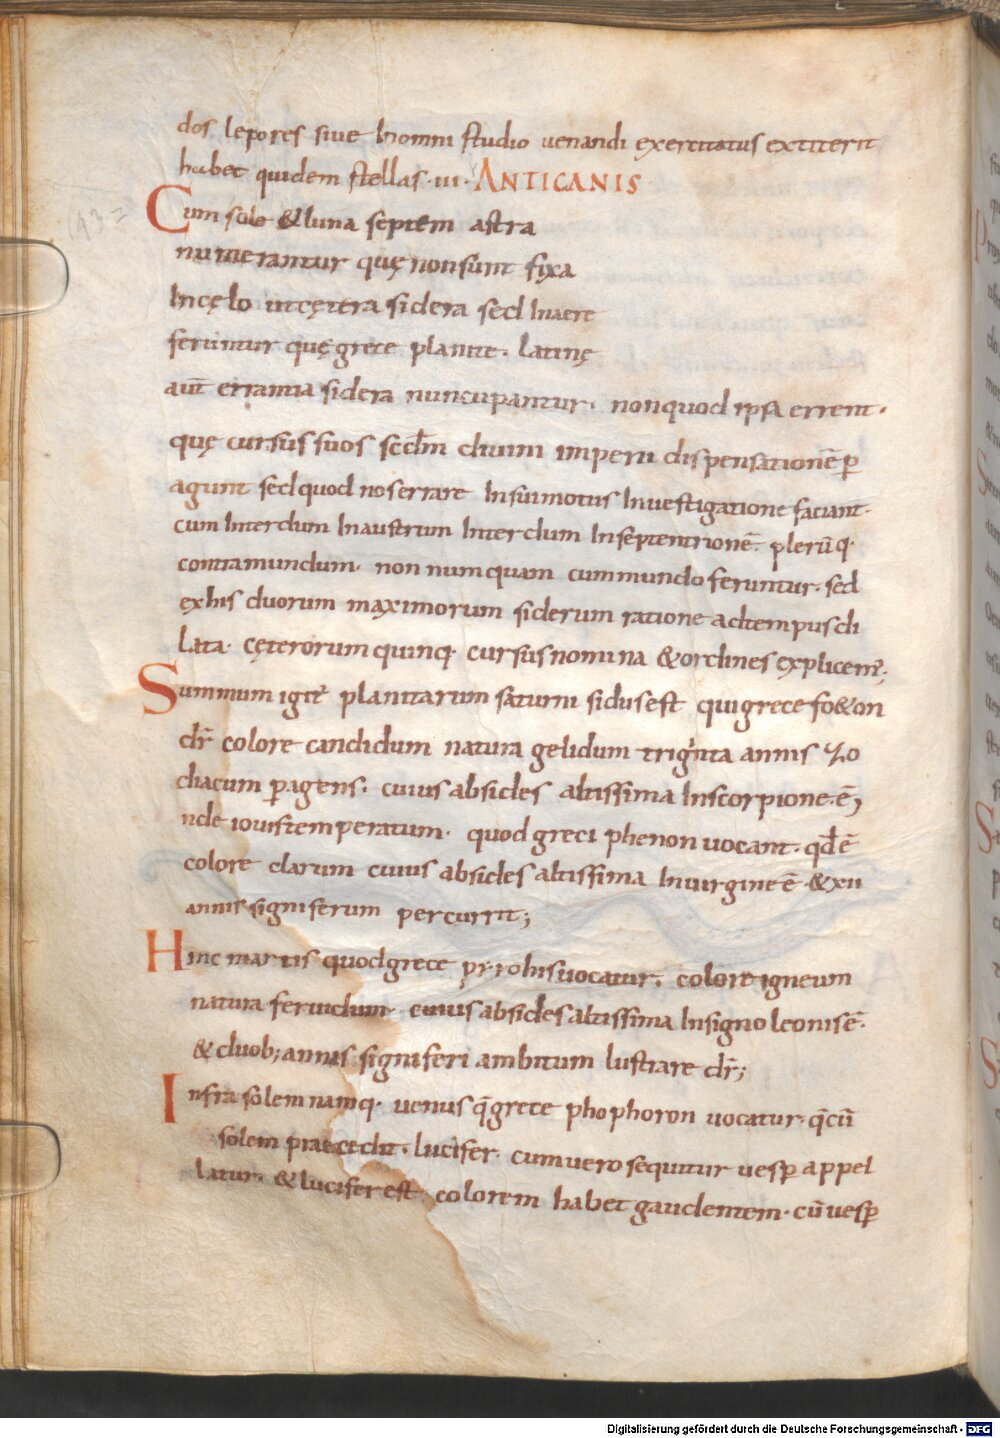 dos lepores siue Inomni studio uenandi exercitatus extiterit
habet quidem stellas·III· ANTICANIS
Cum sole &luna septem astra
numerantur quę nonsunt fixa
Incęlo utcętera sidera sed Inaere
feruntur quę grece planite· latinę
aut̄ errantia sidera nuncupantur· nonquod ipsa errent·
quę cursus suos secdm̄ diuini imperii dispensationē ꝑ
agunt sedquod noserrare Insuimotus Inuestigatione faciant·
cum Interdum Inaustrum Interdum Inseptentrionē· plerūq·
contramundum· non numquam cummundo feruntur· sed
exhis duorum maximorum siderum ratione adtempusdi
lata· cęterorum quinq· cursus nomina &ordines explicem̄;
Summum igit̄ planitarum saturni sidusest quigrece fo&on
dr̄ colore candidum natura gelidum triginta annis zo
diacum ꝑagens· cuius absides altissima Inscorpione·ē;
nde iouistemperatum· quod greci phenon uocant· qđē
colore clarum cuius absides altissima Inuirgine ē &xii
annis signiferum percurrit;
Hinc martis quodgrece pyrohisuocatur· colore igneum
natura feruidum· cuius absides altissima Insigno leonisē·
&duob; annis signiferi ambitum lustrare dr̄;
Infra solem namq· uenus q̄grece phophoron uocatur· q̄cū
solem praecedit· lucifer· cumuero sequitur uesꝑ appel
latur· &luciferest colorem habet gaudentem· cū uesꝑ
Digitalisierung gefördert durch die Deutsche Forschungsgemeinschaft - DFG